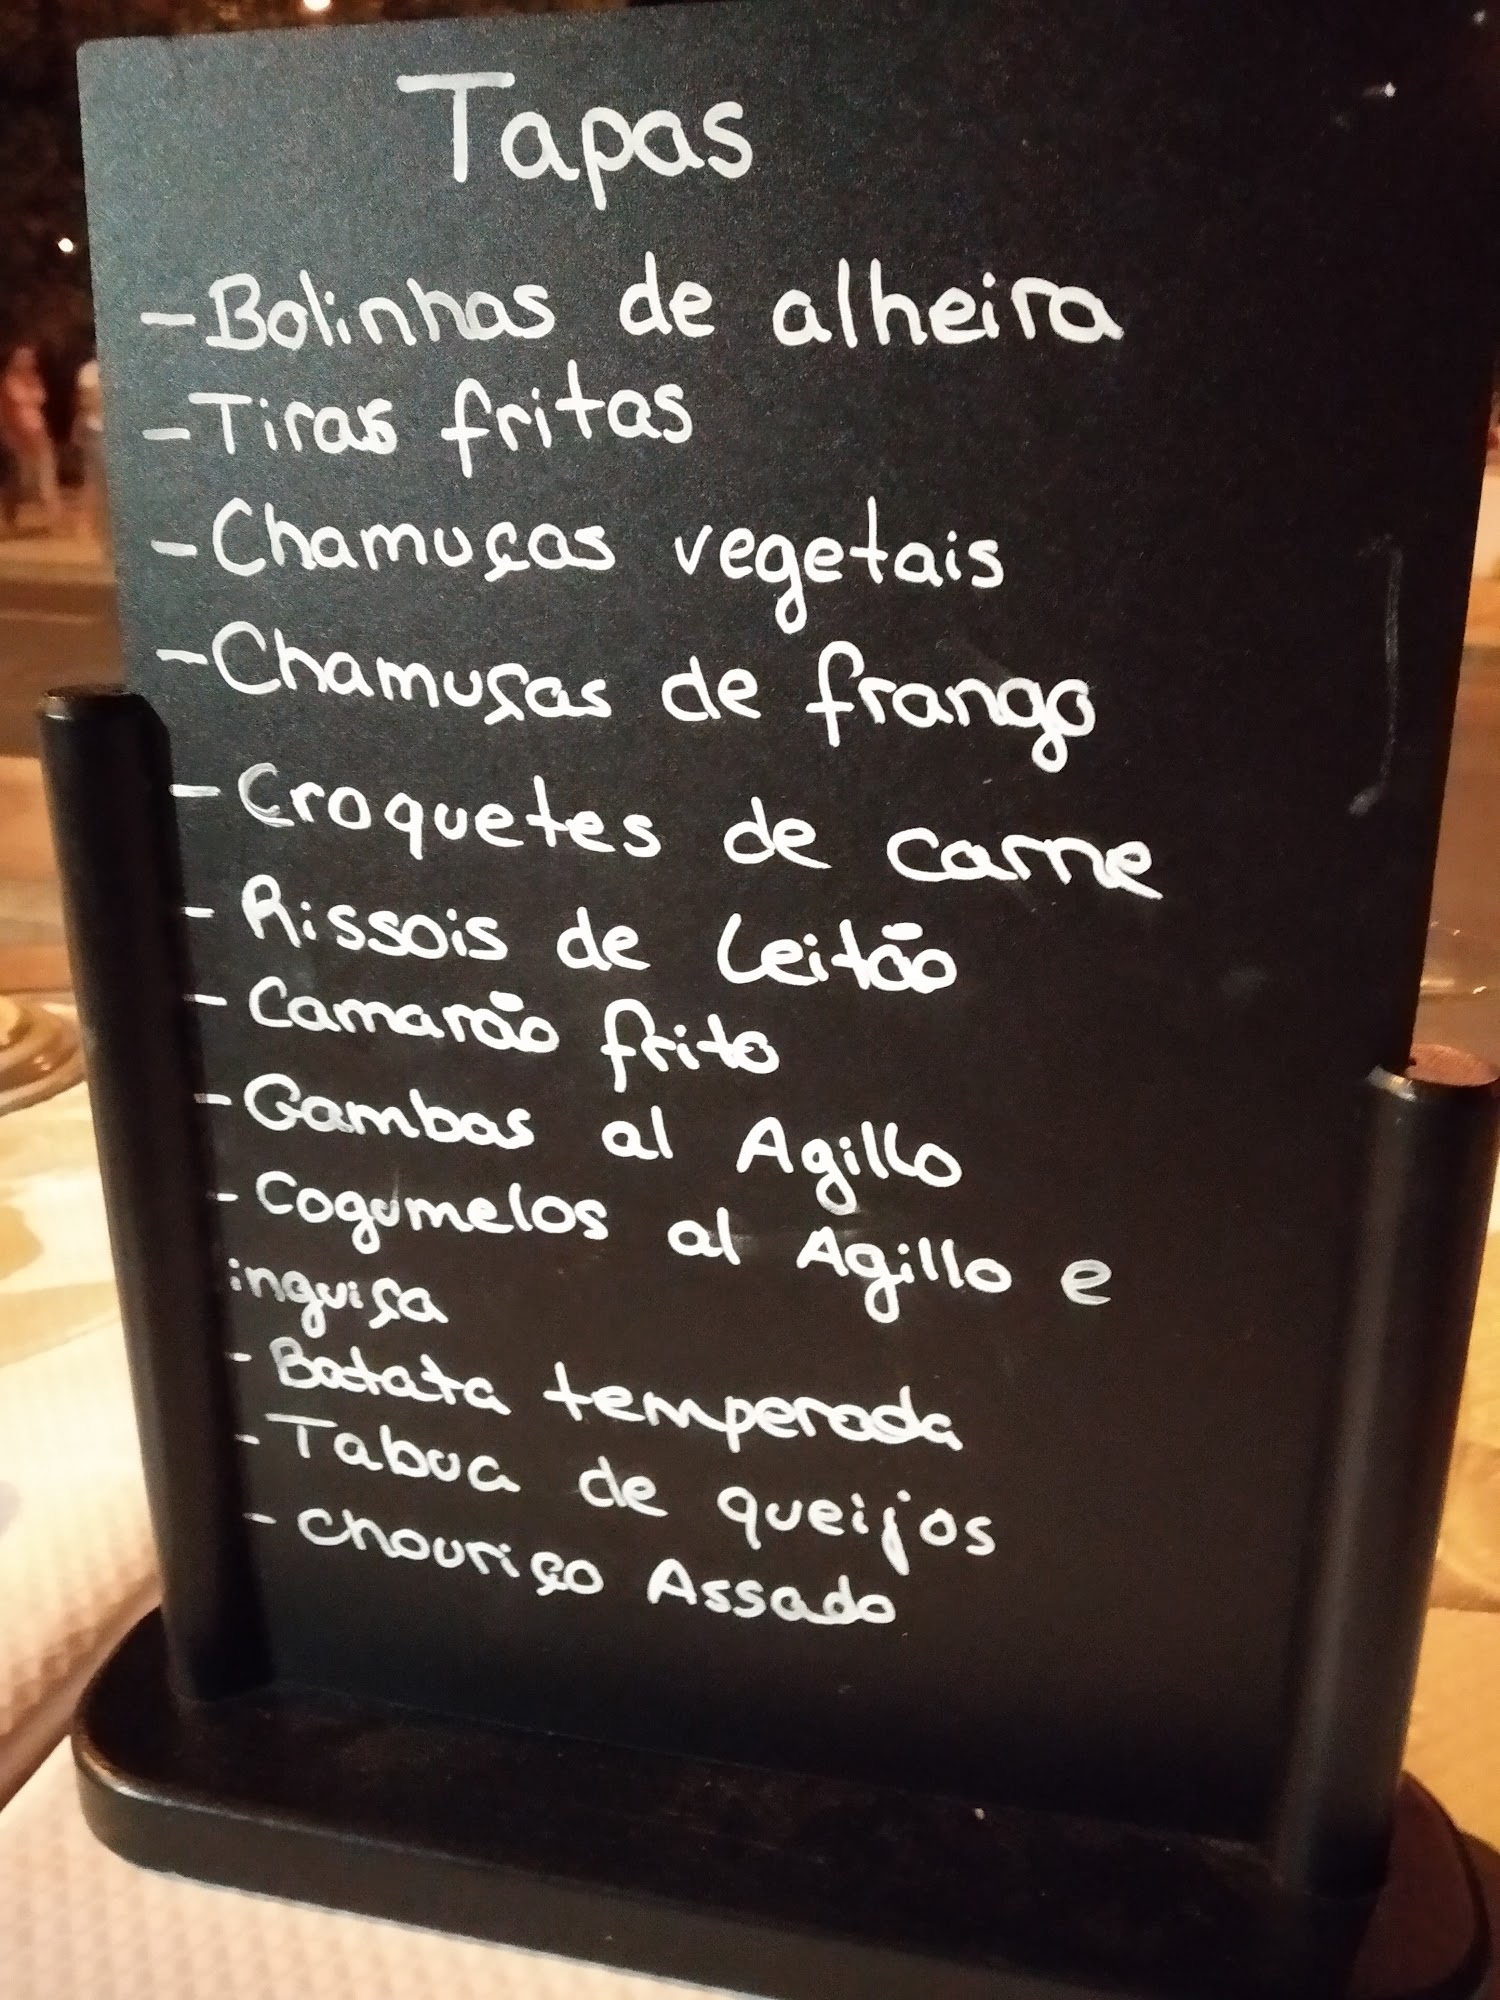 Tapas
- Bolinhas de alheira
- Tiras fritas
- Chamuças vegetais
- Chamuças de frango
- Croquetes de carne
- Rissois de Leitão
- Camarão frito
- Gambas al Agillo
- Cogumelos al Agillo e
inguiça
- Batata temperada
- Tabua de queijos
- chouriço Assado